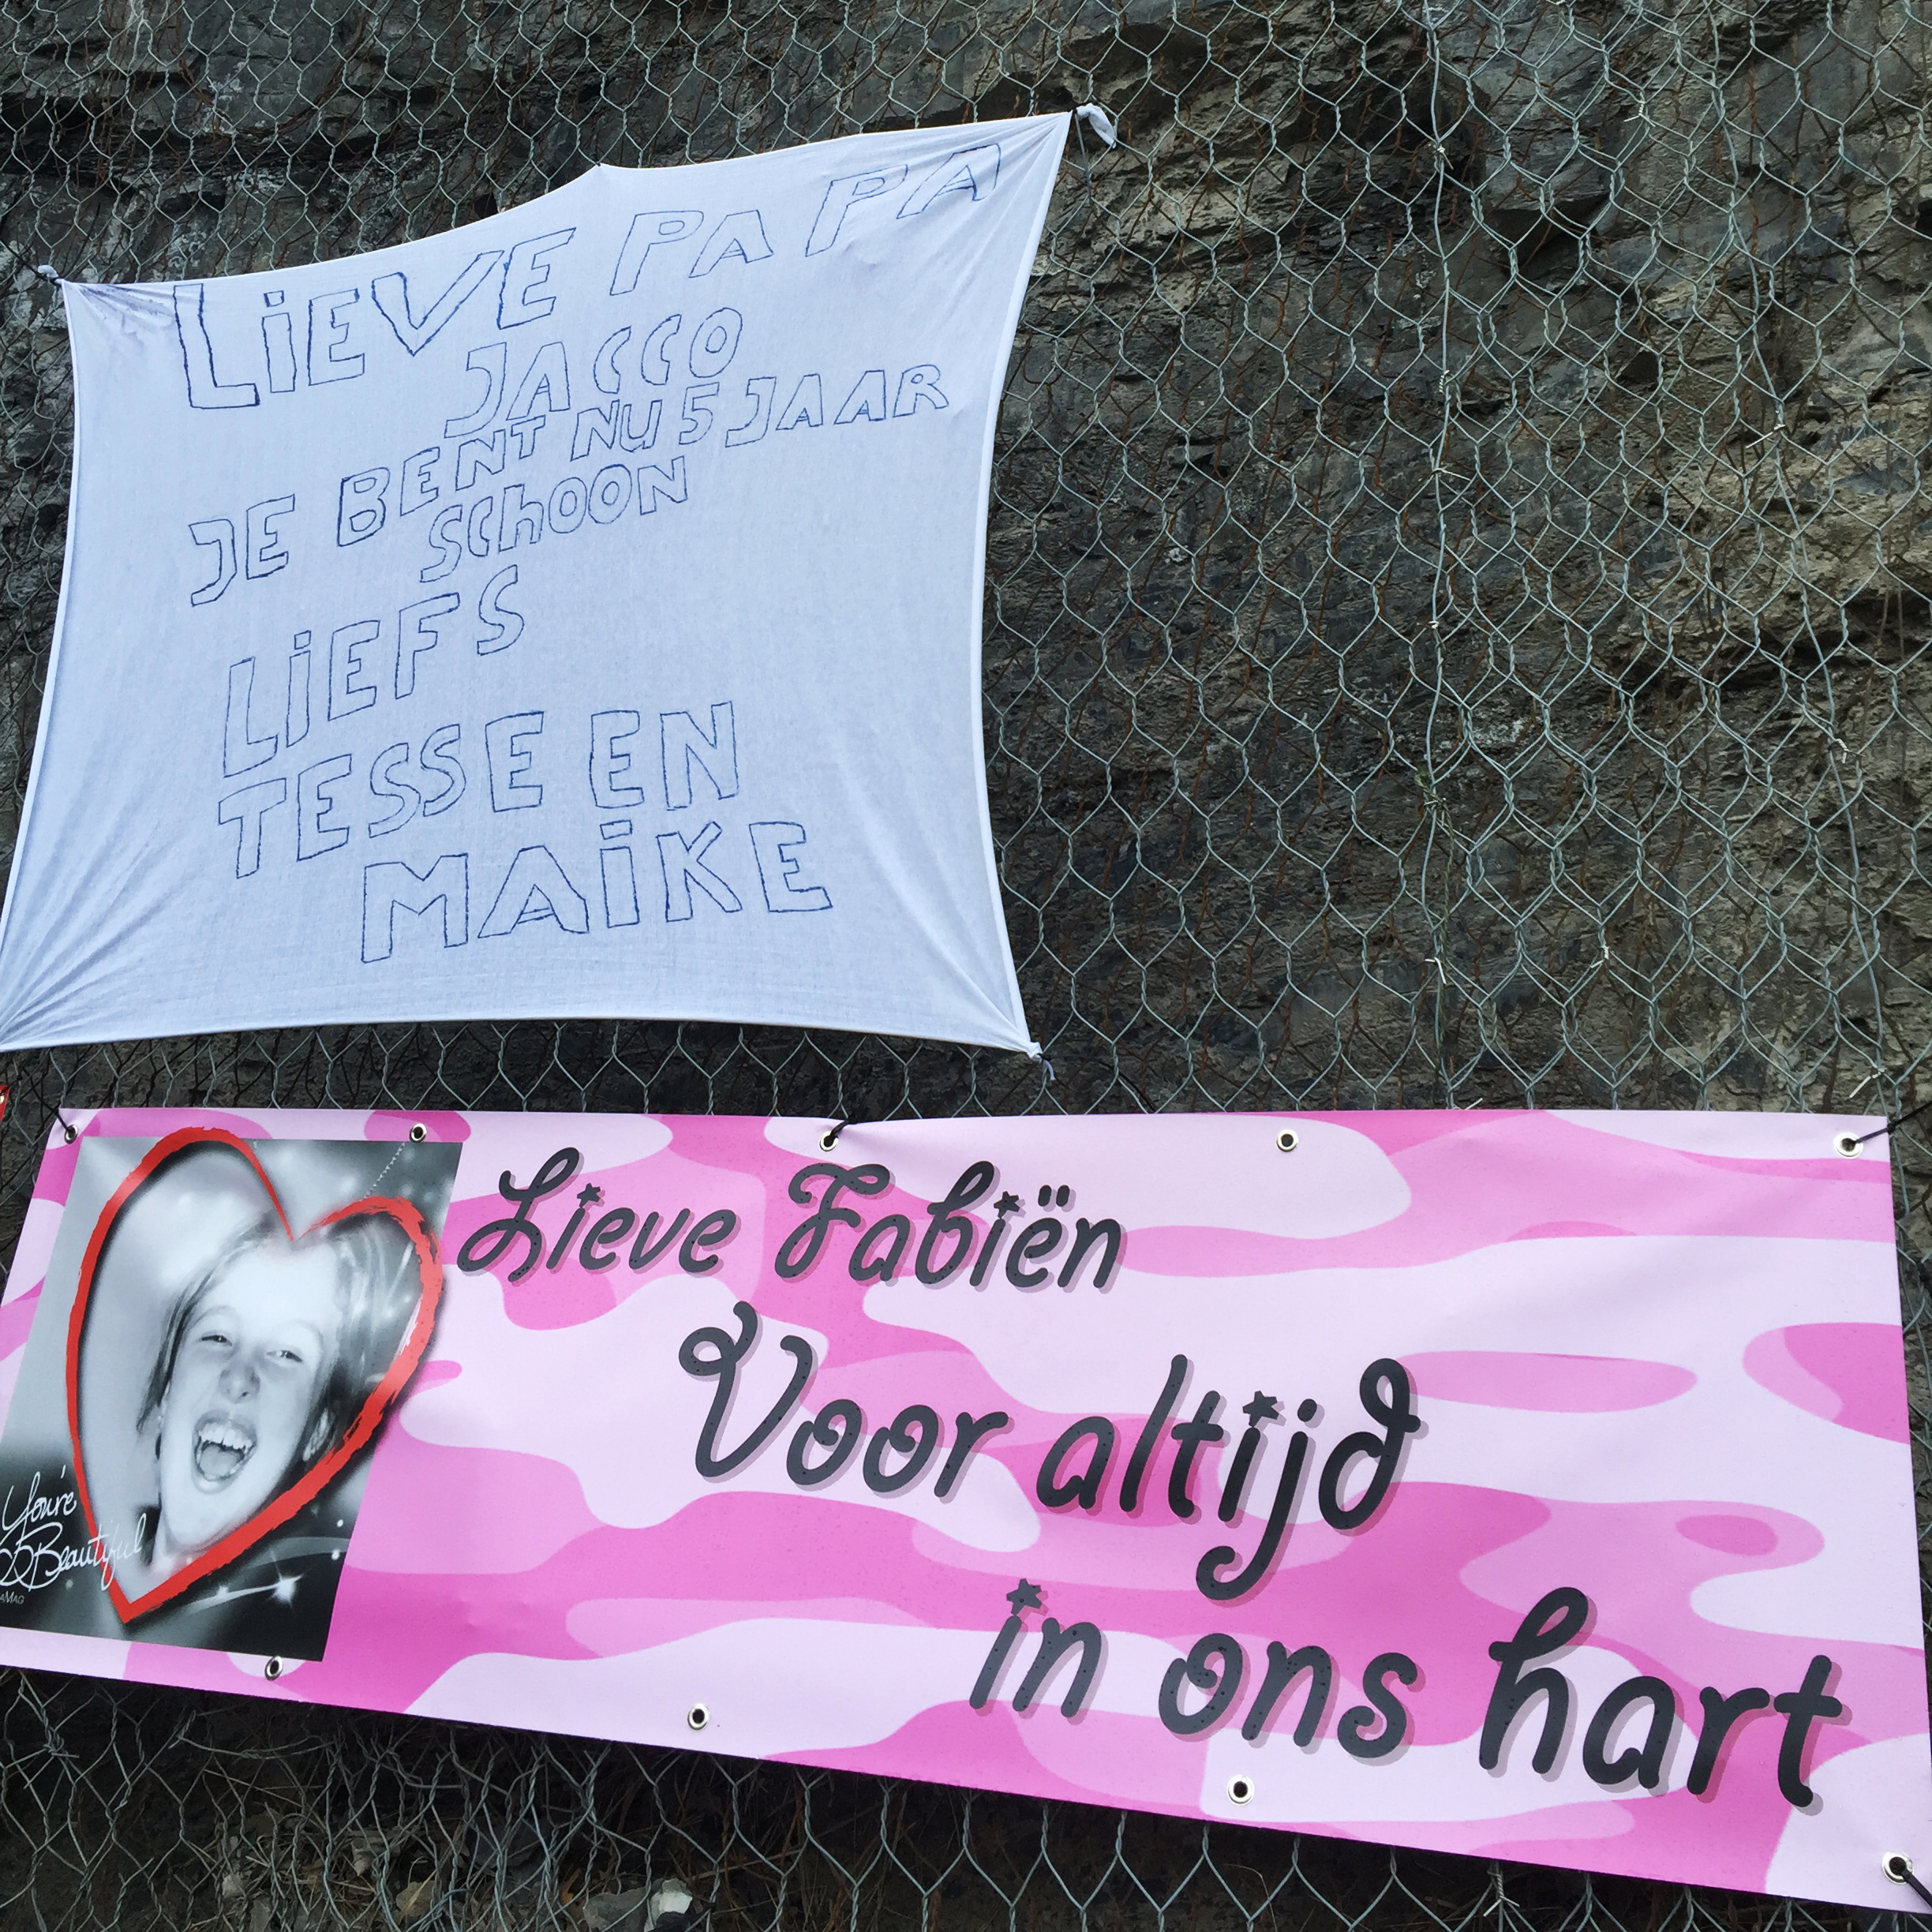 LiEVE PAPA
JACCO
JE BENT NU 5 JAAR
SChOON
LiEFS
TESSE EN
MAiKE
Lieve Fabiën
Voor altijd
in ons hart
You're
Beautiful